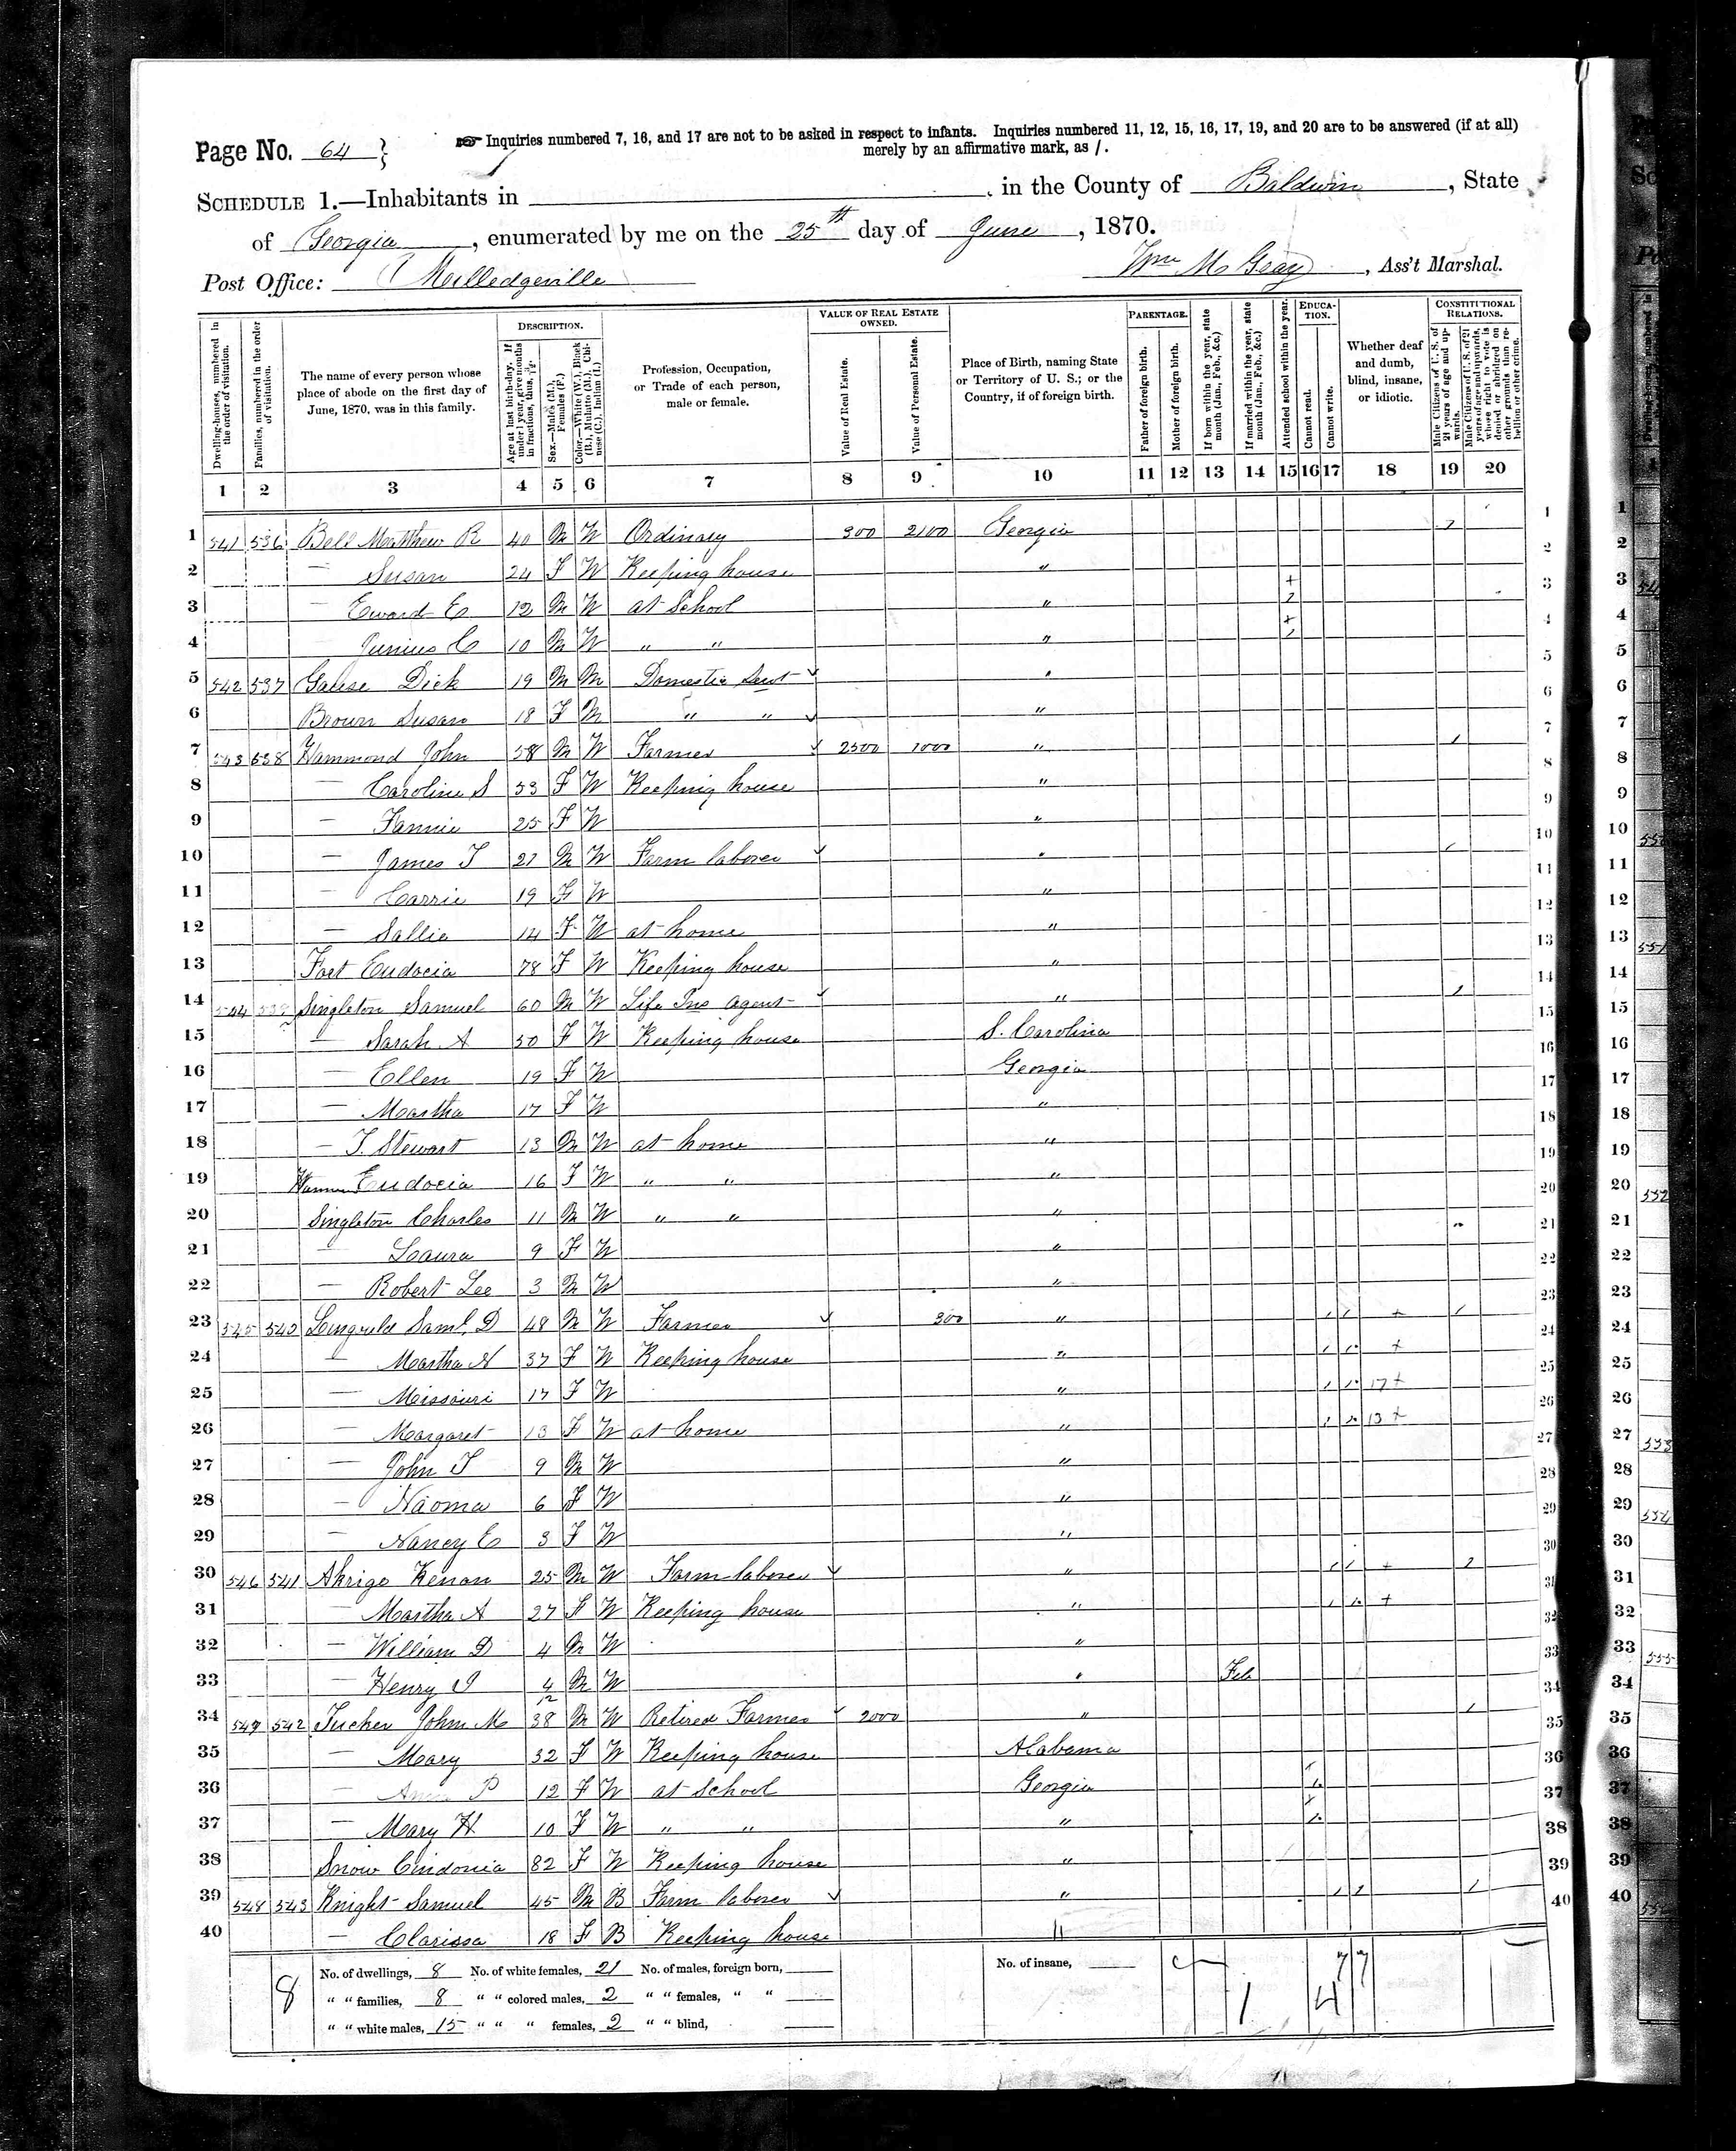 Page No. 64 }
☞ Inquiries numbered 7, 16, and 17 are not to be asked in respect to infants. Inquiries numbered 11, 12, 15, 16, 17, 19, and 20 are to be answered (if at all)
merely by an affirmative mark, as /.
SCHEDULE 1.—Inhabitants in , in the County of Baldwin, State
of Georgia, enumerated by me on the 25th day of June, 1870.
Post Office: Milledgeville
Wm M. , Ass't Marshal.
Dwelling-houses, numbered in the order of visitation.
Families, numbered in the order of visitation.
The name of every person whose place of abode on the first day of June, 1870, was in this family.
DESCRIPTION.
Age at last birth-day. If under 1 year, give months in fractions, thus,
Sex.—Males (M.), Females (F.)
Color.—White (W.), Black (B.), Mulatto (M.), Chinese (C.), Indian (I.)
Profession, Occupation, or Trade of each person, male or female.
VALUE OF REAL ESTATE OWNED.
Value of Real Estate.
Value of Personal Estate.
Place of Birth, naming State or Territory of U. S.; or the Country, if of foreign birth.
PARENTAGE.
Father of foreign birth.
Mother of foreign birth.
If born within the year, state month (Jan., Feb., &c.)
If married within the year, state month (Jan., Feb., &c.)
Attended school within the year.
EDUCATION.
Cannot read.
Cannot write.
Whether deaf and dumb, blind, insane, or idiotic.
CONSTITUTIONAL RELATIONS.
Male Citizens of U. S. of 21 years of age and upwards.
Male Citizens of U. S. of 21 years of age and upwards, whose right to vote is denied or abridged on other grounds than rebellion or other crime.
1 2 3 4 5 6 7 8 9 10 11 12 13 14 15 16 17 18 19 20
1 541 536 Bell Matthew R 40 M W Ordinary 300 2100 Georgia 1
2 — Susan 24 F W Keeping house " 2
3 — Edward E 12 M W at School " 3
4 — Junius C 10 M W " " " 4
5 542 537 Gause Dick 19 M M Domestic Sevt " 5
6 Brown Susan 18 F M " " " 6
7 543 538 Hammond John 58 M W Farmer 2500 1000 " 7
8 — Caroline S 53 F W Keeping house " 8
9 — Fannie 25 F W " 9
10 — James T 21 M W Farm laborer " 10
11 — Carrie 19 F W " 11
12 — Sallie 14 F W at home " 12
13 Fort Eudocia 78 F W Keeping house " 13
14 544 539 Singleton Samuel 60 M W Life Ins Agent " 14
15 — Sarah A 50 F W Keeping house S. Carolina 15
16 — Ellen 19 F W Georgia 16
17 — Martha 17 F W " 17
18 — T. Stewart 13 M W at home " 18
19 Eudocia 16 F W " " " 19
20 Singleton Charles 11 M W " " " 20
21 — Laura 9 F W " 21
22 — Robert Lee 3 M W " 22
23 545 540 Saml. D 48 M W Farmer 300 " 1 1 + 1 23
24 — Martha A 37 F W Keeping house " 1 1 + 24
25 — Missouri 17 F W " 1 1 17 + 25
26 — Margaret 13 F W at home " 1 1 13 + 26
27 — John T 9 M W " 27
28 — Naoma 6 F W " 28
29 — Nancy E 3 F W " 29
30 546 541 Akrige Kenan 25 M W Farm laborer " 1 1 + 1 30
31 — Martha A 27 F W Keeping house " 1 1 + 31
32 — William D 4 M W " 32
33 — Henry J 4/12 M W " Feb 33
34 547 542 Tucker John M 38 M W Retired Farmer 2000 " 1 34
35 — Mary 32 F W Keeping house Alabama 35
36 — Anna P 12 F W at School Georgia 36
37 — Mary H 10 F W " " " 37
38 Snow 82 F W Keeping house " 38
39 548 543 Knight Samuel 45 M B Farm laborer " 1 1 1 39
40 — Clarissa 18 F B Keeping house " 40
8 No. of dwellings, 8 No. of white females, 21 No. of males, foreign born, No. of insane,
" " families, 8 " " colored males, 2 " " females, " "
" " white males, 15 " " " females, 2 " " blind,
1 4 7 7